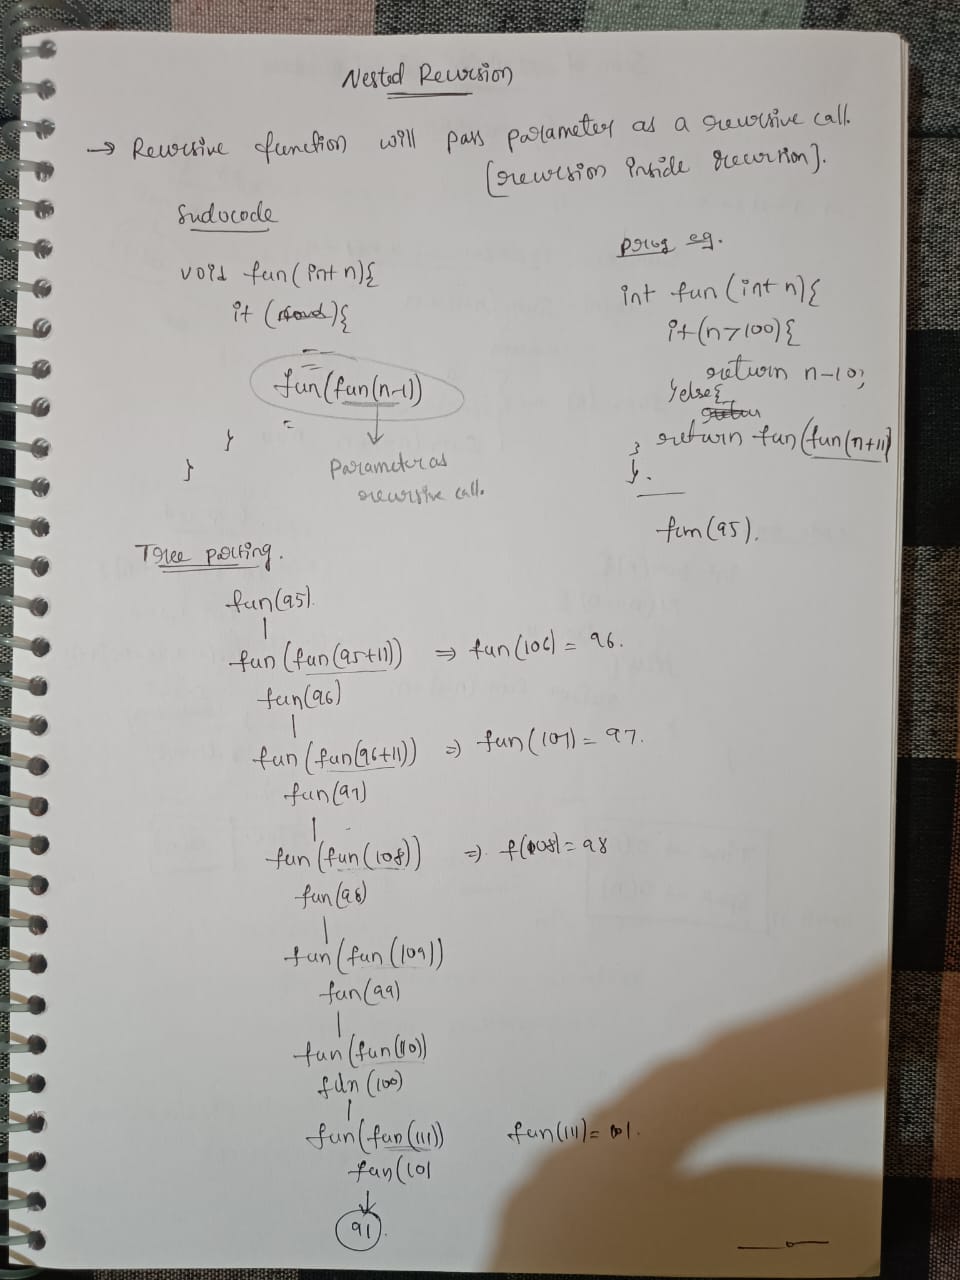 Nested Recursion
→ Recursive function will pass parameter as a recursive call.
[recursion inside recursion].
Sudocode
void fun(int n){
if (){
fun(fun(n-1))
}
}
Parameter as
recursive call.
prog eg.
int fun(int n){
if(n>100){
return n-10;
}else{
return fun(fun(n+11)
}
}.
fun(95).
Tree parting.
fun(95).
fun(fun(95+11)) ⇒ fun(106) = 96.
fun(96)
fun(fun(96+11)) ⇒ fun(107) = 97.
fun(97)
fun(fun(108)) ⇒ f(108) = 98
fun(98)
fun(fun(109))
fun(99)
fun(fun(110))
fun(100)
fun(fun(111)) fun(111) = 101.
fun(101
91